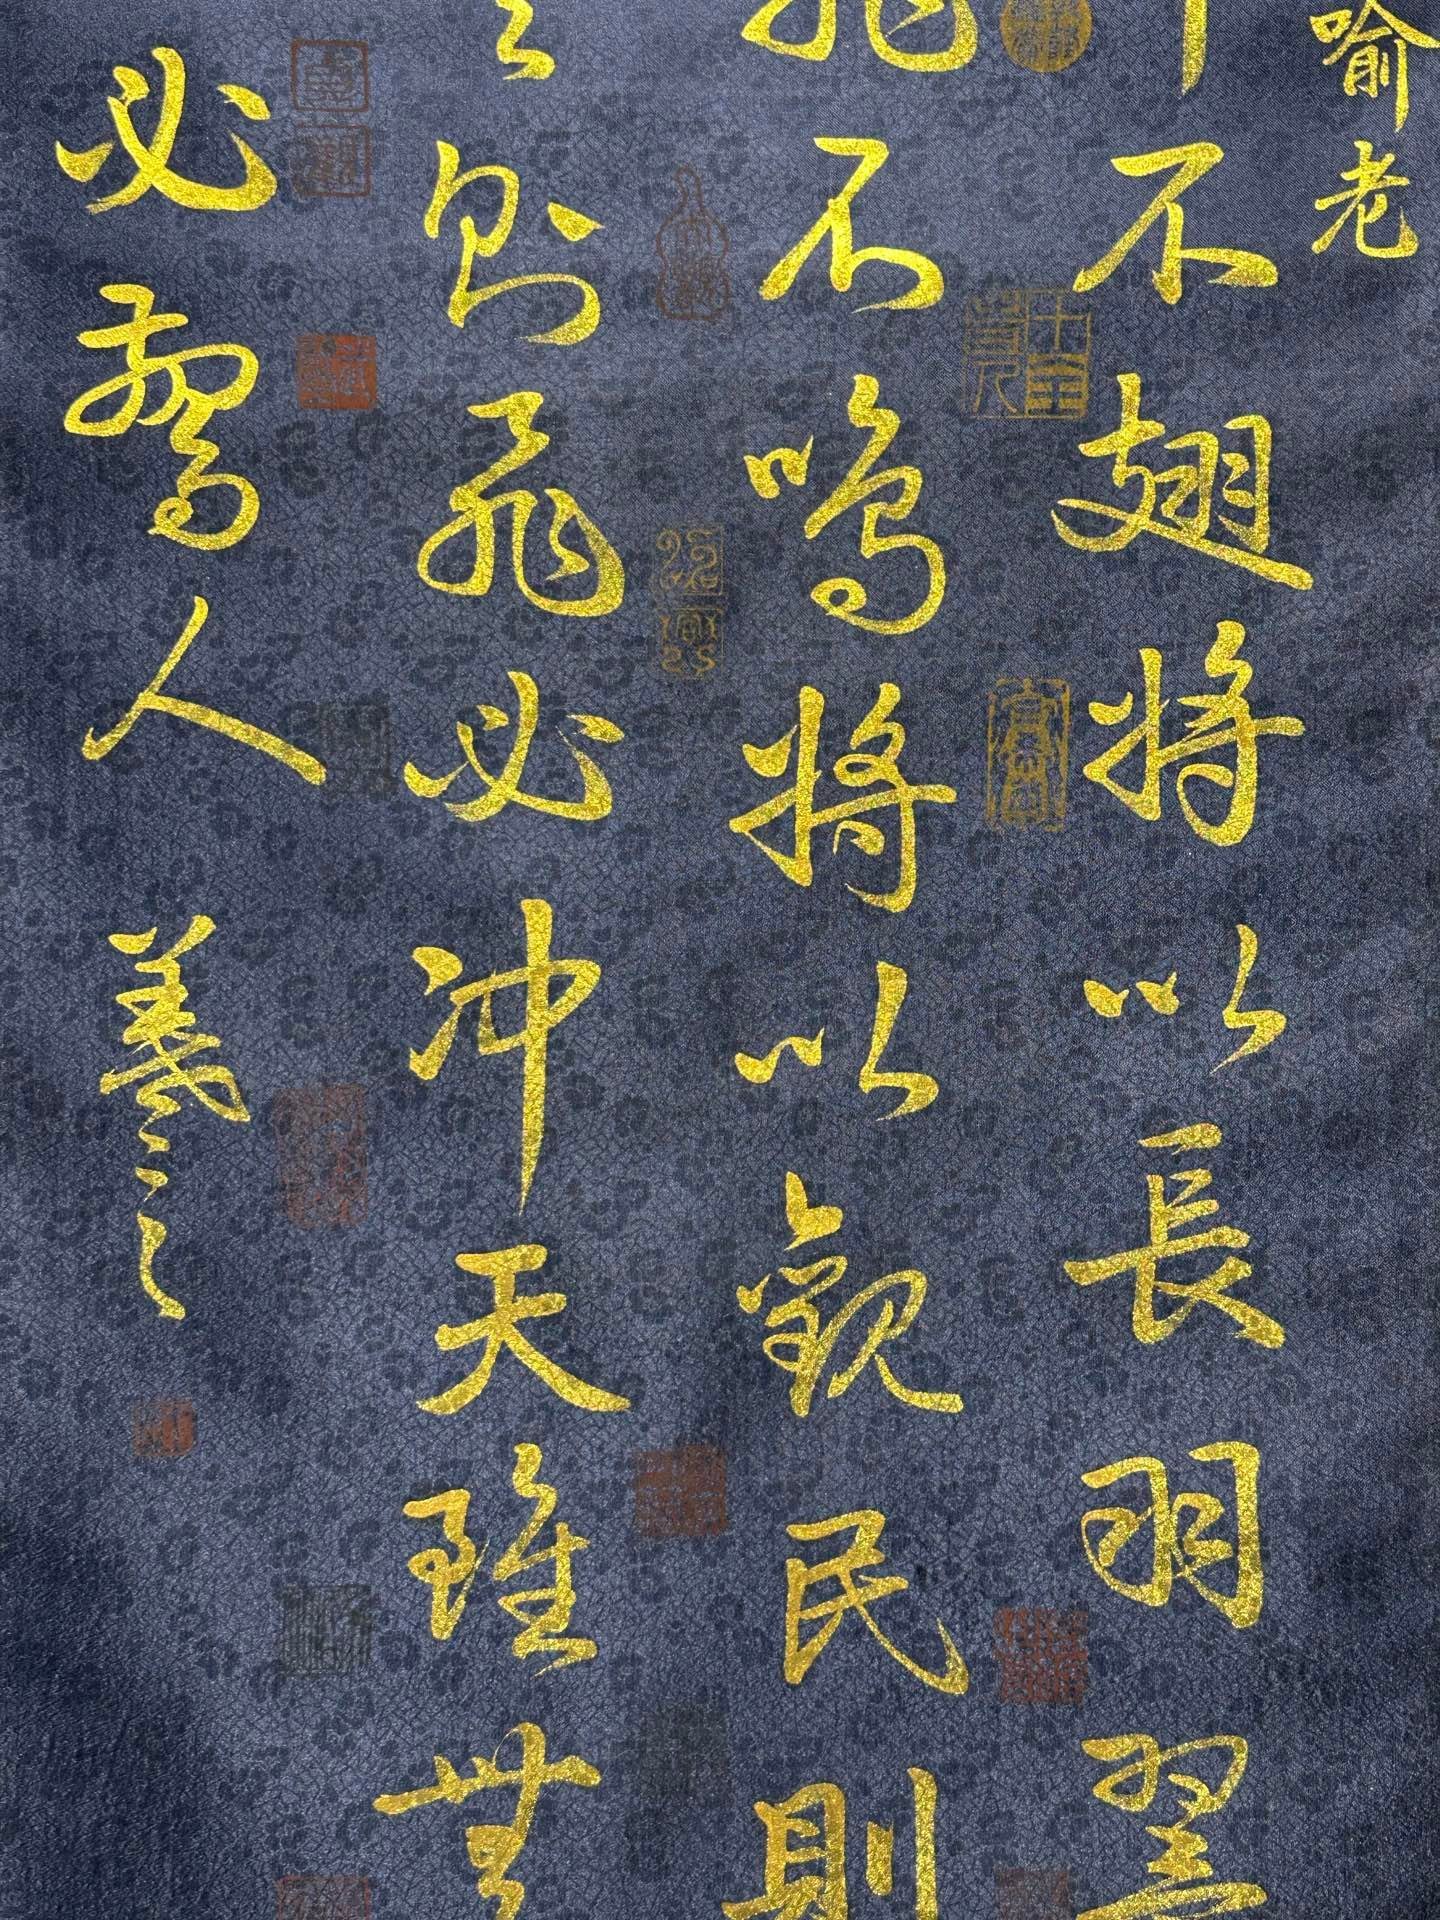 喻老
不翅將以長羽翼
飛不鳴將以觀民則
之則飛必冲天雖無
必驚人
羲之